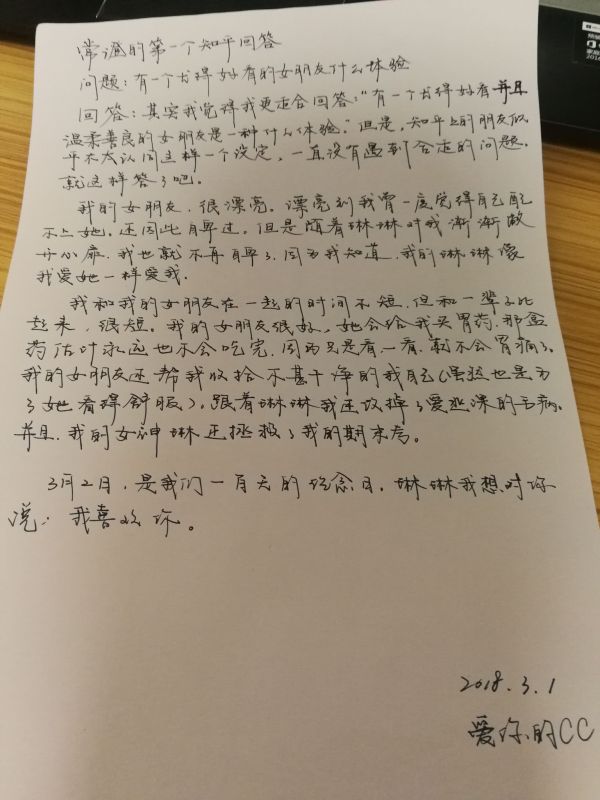 常澄的第一个知乎回答
问题：有一个长得好看的女朋友什么体验
回答：其实我觉得我更适合回答："有一个长得好看并且
温柔善良的女朋友是一种什么体验。"但是，知乎上的朋友似
乎不太认同这样一个设定，一直没有遇到合适的问题。
就这样答了吧。
我的女朋友，很漂亮。漂亮到我曾一度觉得自己配
不上她。还因此自卑过。但是随着琳琳对我渐渐敞
开心扉，我也就不再自卑了，因为我知道，我的琳琳像
我爱她一样爱我。
我和我的女朋友在一起的时间不短，但和一辈子比
起来，很短。我的女朋友很好，她会给我买胃药，那盒
药估计永远也不会吃完，因为只是看一看，就不会胃痛了。
我的女朋友还帮我收拾不甚干净的我自己（虽然也是为
了她看得舒服），跟着琳琳我还改掉了爱逃课的毛病。
并且，我的女神琳还拯救了我的期末考。
3月2日，是我们一百天的纪念日，琳琳我想对你
说：我喜欢你。
2018.3.1
爱你的CC